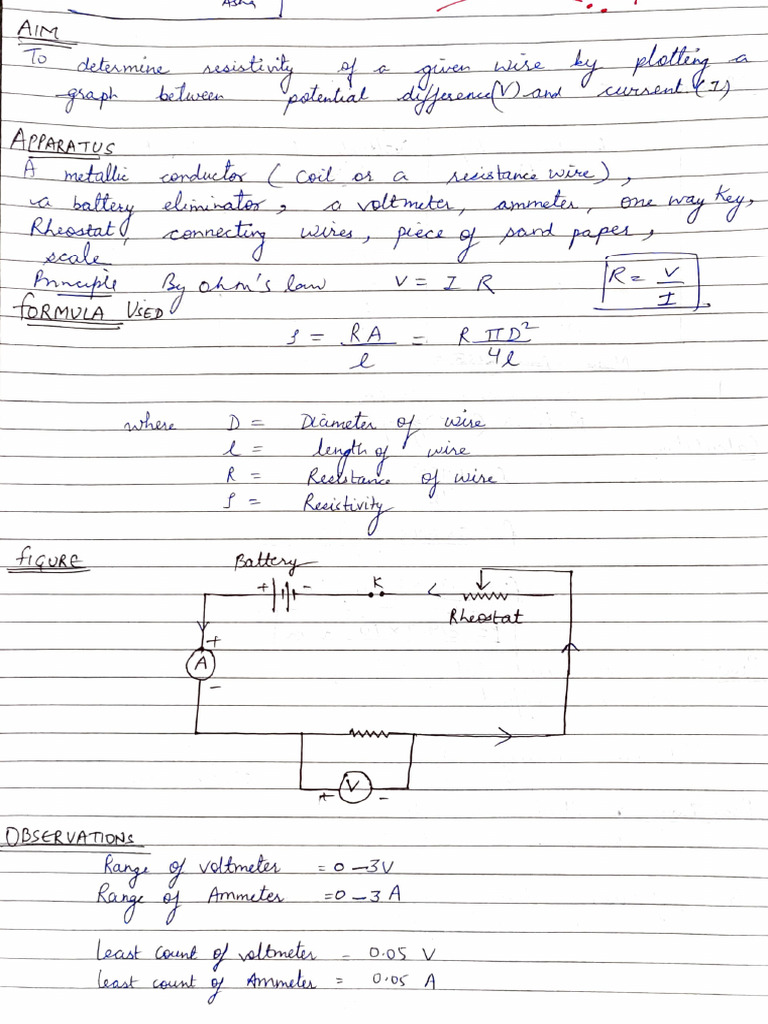 Asha
AIM
To determine resistivity of a given wire by plotting a
graph between potential difference(V) and current (I)
APPARATUS
A metallic conductor ( coil or a resistance wire),
a battery eliminator, a voltmeter, ammeter, one way key,
Rheostat, connecting wires, piece of sand paper,
scale
Principle By ohm's law V = I R R = V/I
FORMULA USED
ρ = RA/l = R πD²/4l
where D = Diameter of wire
l = length of wire
R = Resistance of wire
ρ = Resistivity
FIGURE
Battery
+ - K <
Rheostat
+
A
-
+ V -
OBSERVATIONS
Range of voltmeter = 0 - 3V
Range of Ammeter = 0 - 3 A
Least count of voltmeter = 0.05 V
Least count of Ammeter = 0.05 A